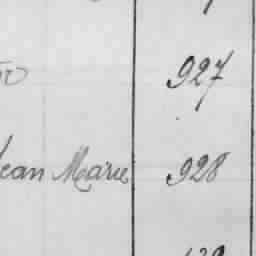 927
Jean Marie 928